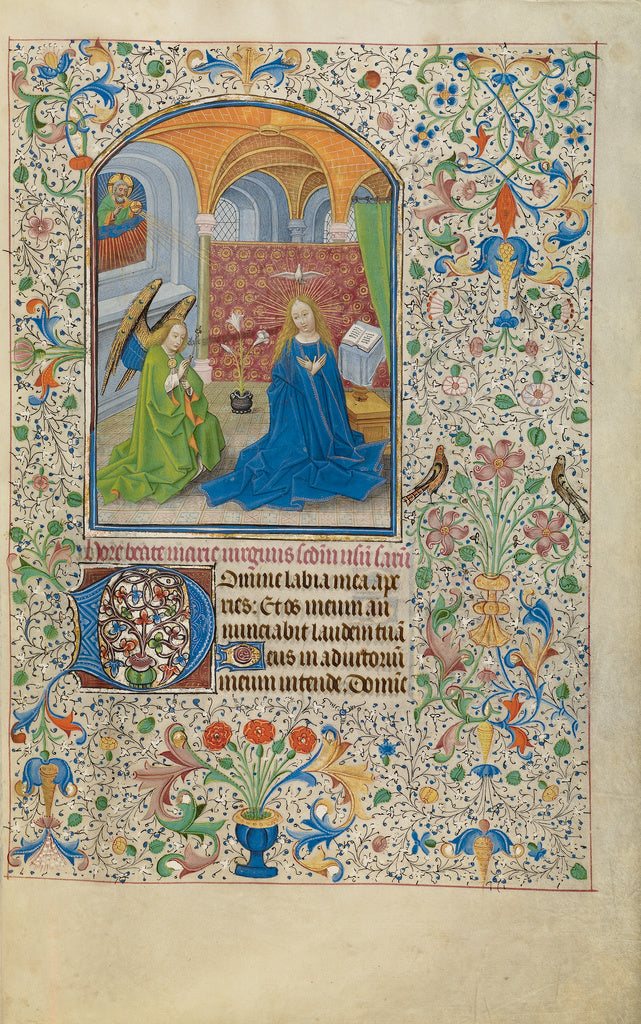 Hore beate marie virginis scdm usū sarū
Domine labia mea ape
ries: Et os meum an
nunciabit laudem tuā
Deus in adiutoriū
meum intende. Domīe